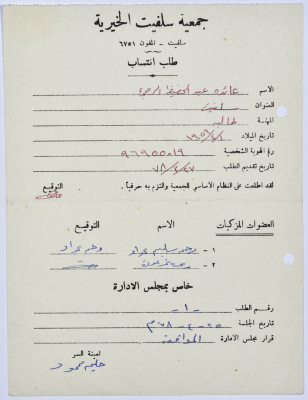 جمعية سلفيت الخيرية
سلفيت - تلفون ٦٧٥١
طلب انتساب
الاسم عائده عبد الحفيظ
العنوان سلفيت
المهنة طالبه
تاريخ الميلاد
رقم الهوية الشخصية ٩٦٩٥٥٠١٩
تاريخ تقديم الطلب
لقد اطلعت على النظام الاساسي للجمعية والتزم به حرفياً . التوقيع
العضوات المزكيات الاسم التوقيع
١ - سليم
٢ -
خاص بمجلس الادارة
رقم الطلب - ١ -
تاريخ الجلسة
قرار مجلس الادارة الموافقة
امينة السر
حليمه محمود